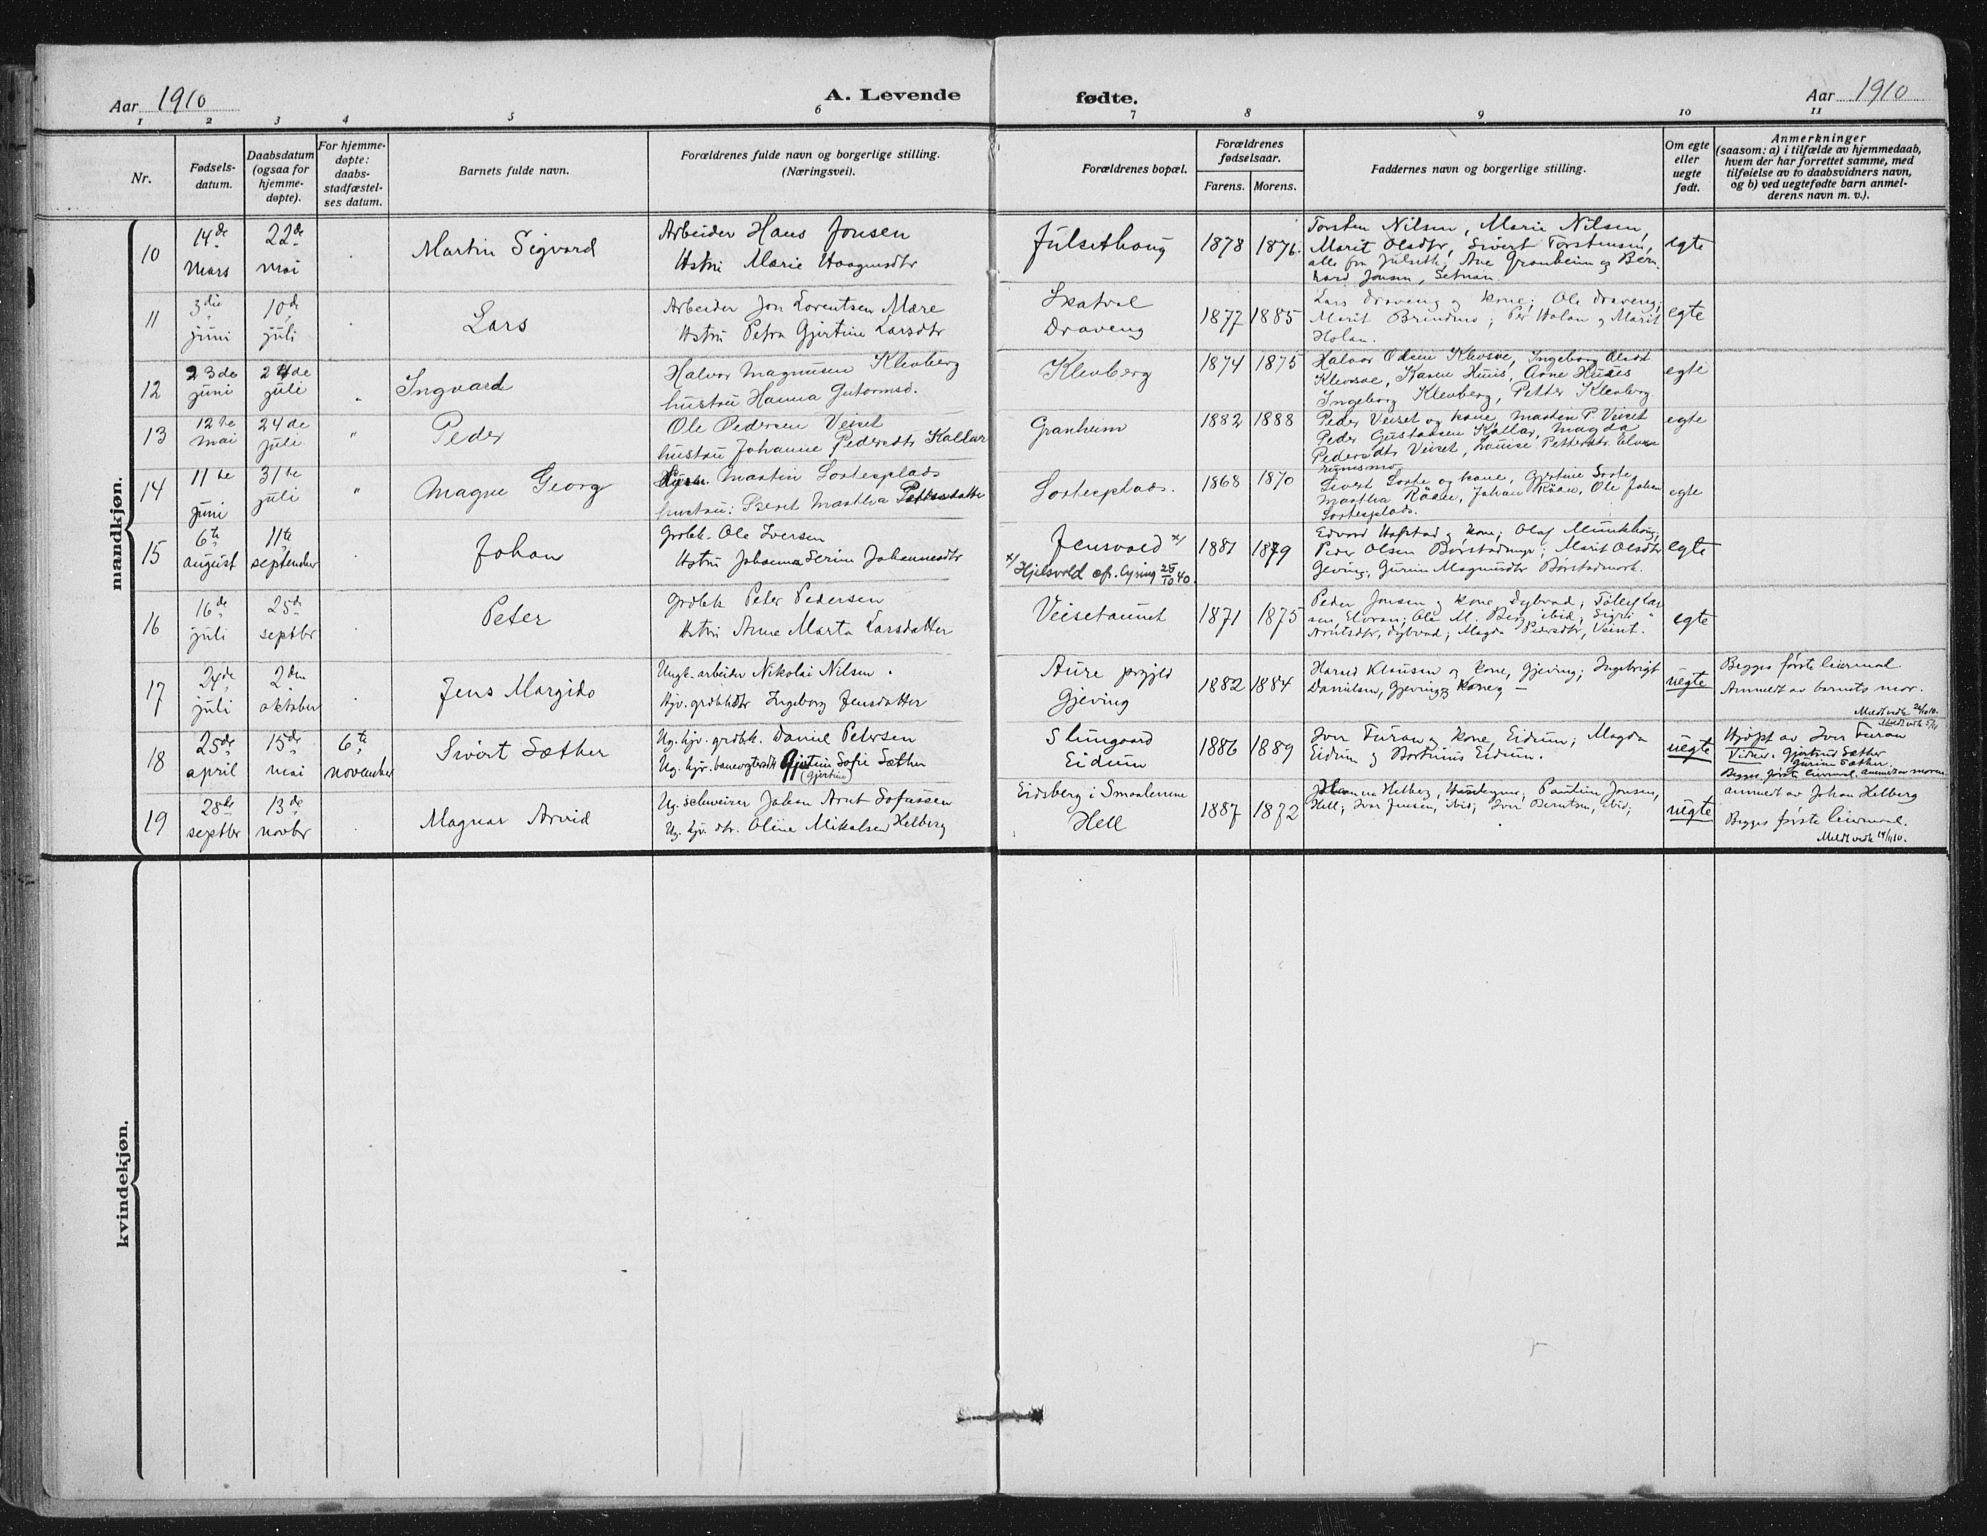 Aar 1910
A. Levende fødte.
Aar 1910
1 2 3 4 5 6 7 8 9 10 11
Nr.
Fødsels-
datum.
Daabsdatum
(ogsaa for
hjemme-
døpte).
For hjemme-
døpte:
daabs-
stadfæstel-
ses datum.
Barnets fulde navn.
Forældrenes fulde navn og borgerlige stilling.
(Næringsvei).
Forældrenes bopæl.
Forældrenes
fødselsaar.
Farens. Morens.
Faddernes navn og borgerlige stilling.
Om egte
eller
uegte
født.
Anmerkninger
(saasom: a) i tilfælde av hjemmedaab,
hvem der har forrettet samme, med
tilføielse av to daabsvidners navn,
og b) ved uegtefødte barn anmel-
derens navn m. v.).
mandkjøn.
10
14de
mars
22de
mai
Martin Sigvard
Arbeider Hans Jonsen
Hstru Marie Haagensdtr
Julsethaug
1878 1876.
Torsten Nilsen, Marie Nilsen,
Marit Olsdtr, Sivert Torstensen,
alle fra Julseth; Ane Granheim og Bern-
hard Jonsen, Setnan.
egte
11
3die
juni
10de
juli
Lars
Arbeider Jon Lorentsen Mære
Hstru Petra Gjertine Larsdtr
Skatval
Draveng
1877 1885
Lars Draveng og kone; Ole Draveng;
Marit Brendmo; Per Holan og Marit
Holan.
egte
12
23de
juni
24de
juli
Ingvard
Halvor Magnusen Klevberg
hustru Hanna Gutormsd.
Klevberg
1874 1875
Halvor Odin Klevsve, Ingeborg Olsdt
Klevsve, Karen Huus, Arne Huses
Ingeborg Klevberg, Petter Klevberg
egte
13
12te
mai
24de
juli
"
Peder
Ole Pedersen Veiset
hustru Johanne Pedersdtr Kallar
Granheim
1882 1888
Peder Veiset og kone, Martin P. Veiset
Peder Gustavsen Kallar, Magda
Pedersdtr Veiset, Louise Pettersdtr Elvran
rumsmo
egte
14
11te
juni
31te
juli
"
Magne Georg
Martin Sorteplads
hustru: Beret Martha Pettersdatter
Sorteplads.
1868 1870
Sivert Sorte og kone, Gjertine Sorte
Martha Råan, Johan Råan, Ole Johan
Sorteplads.
egte
15
6te
august
11te
september
Johan
Grdbk. Ole Iversen
Hstru Johanna Serine Johannesdtr
Jensvold x/
x/ Hjelsvold efr. Lysing 25/10 40.
1881 1879
Edvard Hofstad og kone; Olaf Munkhaug;
Peder Olsen Børstadmyr; Marit Olsdtr
Geving, Gurine Magnusdtr Børstadmark.
egte
16
16de
juli
25de
septbr
Peter
Grdbk Peter Pedersen
Hstru Anne Marta Larsdatter
Veisetaunet
1871 1875
Peder Jonsen og kone, Dybvad; Tollef Lar-
sen, Elvran; Ole M. Berg ibid; Sigri
Arntsdtr, Dybvad; Magda Pedersdtr, Veiset.
egte
17
24de
juli
2den
oktober
Jens Margido
Ungk. arbeider Nikolai Nilsen.
Hjv. grdbkdtr Ingeborg Jensdatter
Aure prgjld
Gjeving
1882 1884
Harald Klausen og kone, Gjeving; Ingebrigt
Danielsen, Gjeving og kone
uegte
Begges første leiermaal
Anmeldt av barnets mor.
Meldt vedk 24/10 10.
18
25de
april
15de
mai
6te
november
Sivert Sæther
Ug. hjv. grdbk. Daniel Petersen
Ug. hjv. banevogterdtr Gjertine Sofie Sæther
(Gjertine)
Slungaard
Eidum
1886 1889
Iver Furan og kone, Eidum; Magda
Eidum og Bortinius Eidum.
uegte
Hjdøpt av Iver Furan
Vidner. Gjertrud Sæther
Gurine Sæther.
Begges første leiermaal. anmeldt av moren
19
28de
septbr
13de
novbr
Magnar Arvid
Ug. schweizer Johan Arnt Sofussen
Ug. hjv. dtr. Oline Mikalsen Helberg
Eidsberg i Smaalenene
Hell
1887 1872
Johanna Helberg, Jonsen,
Hell; Iver Jensen, ibid; Iver Berntsen, ibid;
uegte
anmeldt av Johan Helberg
Begges første leiermaal.
Meldt vedk 14/11 10.
kvindekjøn.